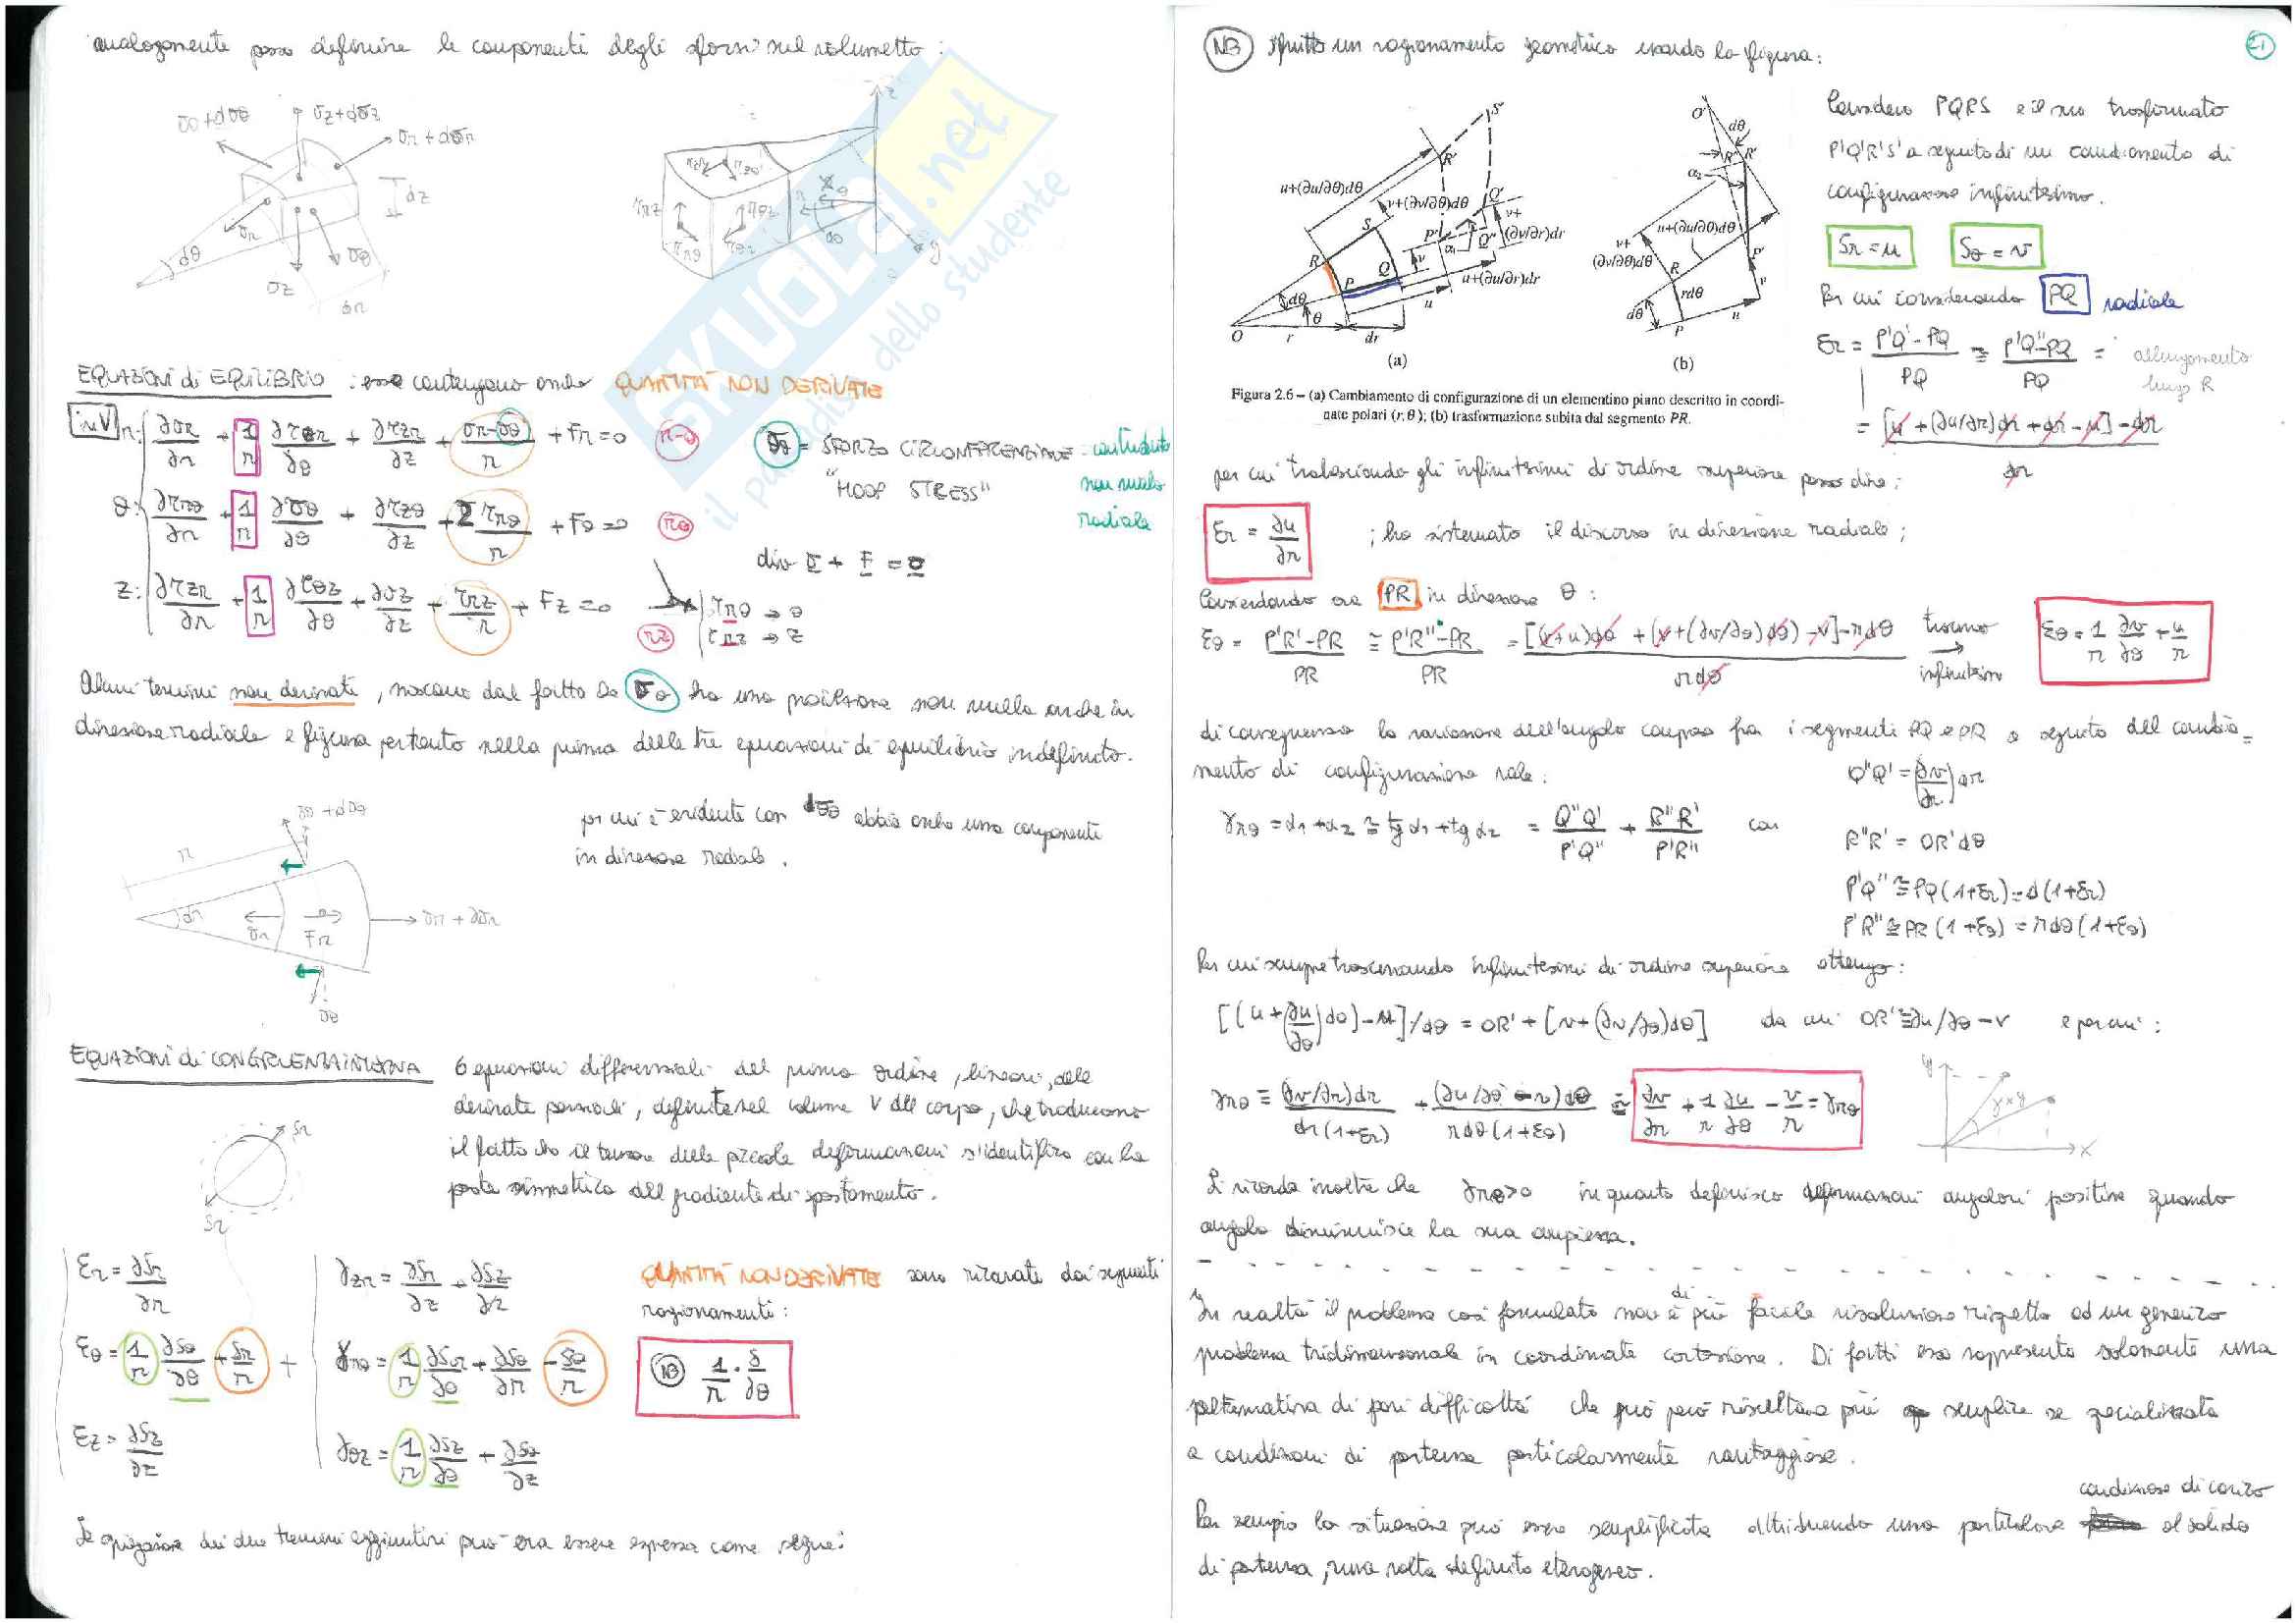 analogamente posso definire le componenti degli sforzi sul volumetto:
σθ+dσθ
σz+dσz
σr+dσr
dz
σr
dθ
σθ
σz
dr
z
τrz
τrθ
τθz
τθr
dθ
y
SKUOLA.net
il paradiso dello studente
EQUAZIONI di EQUILIBRIO : esse contengono anche QUANTITÀ NON DERIVATE
in V
r: ∂σr/∂r + 1/r ∂τθr/∂θ + ∂τzr/∂z + (σr-σθ)/r + Fr = 0
σθ = SFORZO CIRCONFERENZIALE = contributo non nullo radiale
"HOOP STRESS"
θ: ∂τrθ/∂r + 1/r ∂σθ/∂θ + ∂τzθ/∂z + 2τrθ/r + Fθ = 0
rθ
div σ + F = 0
z: ∂τzr/∂r + 1/r ∂τθz/∂θ + ∂σz/∂z + τrz/r + Fz = 0
rz
τrθ → θ
τrz → z
Alcuni termini non derivati, nascono dal fatto che σθ ha una proiezione non nulla anche in
direzione radiale e figura pertanto nella prima delle tre equazioni di equilibrio indefinito.
σθ+dσθ
r
per cui è evidente con dσθ abbia anche una componente
in direzione radiale.
σr
Fr
σr + dσr
σθ
EQUAZIONI di CONGRUENZA INTERNA 6 equazioni differenziali del primo ordine, lineari, alle
derivate parziali, definite nel volume V del corpo, che traducono
il fatto che il tensore delle piccole deformazioni s'identifica con la
parte simmetrica del gradiente di spostamento.
Sr
Sr
εr = ∂Sr/∂r
γzr = ∂Sr/∂z + ∂Sz/∂r
QUANTITÀ NON DERIVATE sono ricavate dai seguenti
ragionamenti:
εθ = 1/r ∂Sθ/∂θ + Sr/r
γrθ = 1/r ∂Sr/∂θ + ∂Sθ/∂r - Sθ/r
NB 1/r · ∂/∂θ
εz = ∂Sz/∂z
γθz = 1/r ∂Sz/∂θ + ∂Sθ/∂z
La spiegazione dei due termini aggiuntivi può ora essere espressa come segue:
21
NB sfrutto un ragionamento geometrico usando la figura:
u+(∂u/∂θ)dθ
v+(∂v/∂θ)dθ
v+
(∂v/∂r)dr
u+(∂u/∂r)dr
R
S
P
Q
R'
S'
P'
Q'
Q''
α₁
u
v
dθ
θ
O
r
dr
(a)
O'
dθ
R''
R'
α₂
v+
(∂v/∂θ)dθ
u+(∂u/∂θ)dθ
R
P'
rdθ
dθ
P
u
v
(b)
Figura 2.6 – (a) Cambiamento di configurazione di un elementino piano descritto in coordi-
nate polari (r, θ); (b) trasformazione subita dal segmento PR.
Considero PQRS e il suo trasformato
P'Q'R'S' a seguito di un cambiamento di
configurazione infinitesimo.
Sr = u
Sθ = v
Per cui considerando PQ radiale
εr = (P'Q'-PQ)/PQ ≅ (P'Q''-PQ)/PQ = allungamento lungo R
= ([u + (∂u/∂r)dr + dr - u] - dr)/dr
per cui tralasciando gli infinitesimi di ordine superiore posso dire:
εr = ∂u/∂r ; ho sistemato il discorso in direzione radiale;
Considerando ora PR in direzione θ:
εθ = (P'R'-PR)/PR ≅ (P'R''-PR)/PR = ([(r+u)dθ + (v+(∂v/∂θ)dθ) - v] - rdθ)/rdθ
εθ = 1/r ∂v/∂θ + u/r
di conseguenza la variazione dell'angolo compreso fra i segmenti PQ e PR a seguito del cambia=
mento di configurazione vale:
Q''Q' = (∂v/∂r)dr
γrθ = α1+α2 ≅ tgα1+tgα2 = Q''Q'/P'Q'' + R''R'/P'R'' con
R''R' = OR'dθ
P'Q'' ≅ PQ(1+εr) = d(1+εr)
P'R'' ≅ PR(1+εθ) = rdθ(1+εθ)
Per cui sempre trascurando infinitesimi di ordine superiore ottengo:
[(u+(∂u/∂θ)dθ)-u]/dθ = OR' + [v+(∂v/∂θ)dθ] da cui OR' ≅ ∂u/∂θ - v e per cui:
γrθ ≅ (∂v/∂r)dr/dr(1+εr) + (∂u/∂θ - v)dθ/rdθ(1+εθ) ≅ ∂v/∂r + 1/r ∂u/∂θ - v/r = γrθ
y
γxy
x
Si ricorda inoltre che γrθ>0 in quanto definisco deformazioni angolari positive quando
angolo diminuisce la sua ampiezza.
In realtà il problema così formulato non è di più facile risoluzione rispetto ad un generico
problema tridimensionale in coordinate cartesiane. Di fatti esso rappresenta solamente una
alternativa di pari difficoltà che può però risultare più semplice se specializzata
a condizioni di partenza particolarmente vantaggiose.
Per esempio la situazione può essere semplificata attribuendo una particolare condizione di carico al solido
di partenza, una volta definito eterogeneo.